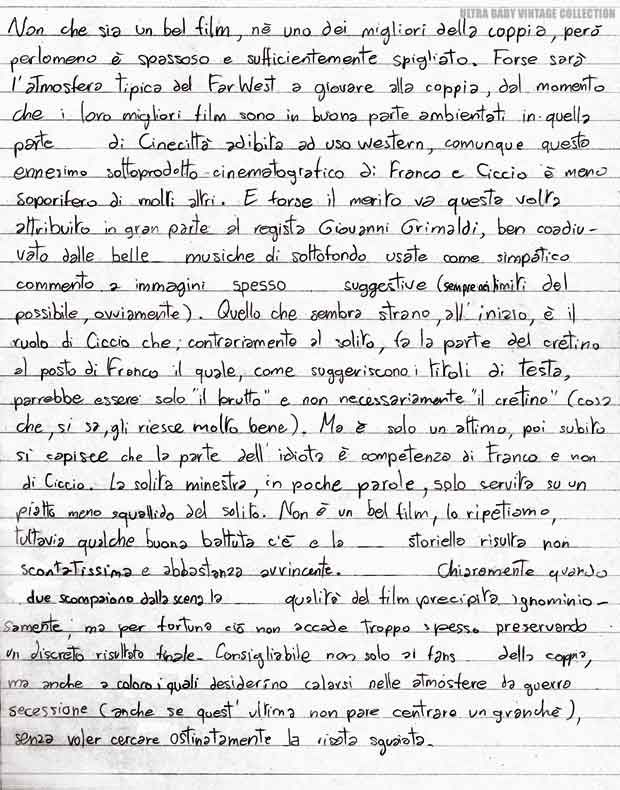 ULTRA BABY VINTAGE COLLECTION
Non che sia un bel film, nè uno dei migliori della coppia, però
perlomeno è spassoso e sufficientemente spigliato. Forse sarà
l'atmosfera tipica del Far West a giovare alla coppia, dal momento
che i loro migliori film sono in buona parte ambientati in quella
parte di Cinecittà adibita ad uso western, comunque questo
ennesimo sottoprodotto cinematografico di Franco e Ciccio è meno
soporifero di molti altri. E forse il merito va questa volta
attribuito in gran parte al regista Giovanni Grimaldi, ben coadiu-
vato dalle belle musiche di sottofondo usate come simpatico
commento a immagini spesso suggestive (sempre nei limiti del
possibile, ovviamente). Quello che sembra strano, all'inizio, è il
ruolo di Ciccio che, contrariamente al solito, fa la parte del cretino
al posto di Franco il quale, come suggeriscono i titoli di testa,
parrebbe essere solo "il brutto" e non necessariamente "il cretino" (cosa
che, si sa, gli riesce molto bene). Ma è solo un attimo, poi subito
si capisce che la parte dell'idiota è competenza di Franco e non
di Ciccio. La solita minestra, in poche parole, solo servita su un
piatto meno squallido del solito. Non è un bel film, lo ripetiamo,
tuttavia qualche buona battuta c'è e la storiella risulta non
scontatissima e abbastanza avvincente. Chiaramente quando
due scompaiono dalla scena la qualità del film precipita ignominio-
samente, ma per fortuna ciò non accade troppo spesso preservando
un discreto risultato finale. Consigliabile non solo ai fans della coppia,
ma anche a coloro i quali desiderino calarsi nelle atmosfere da guerra
secessione (anche se quest'ultima non pare centrare un granchè),
senza voler cercare ostinatamente la risata sguaiata.